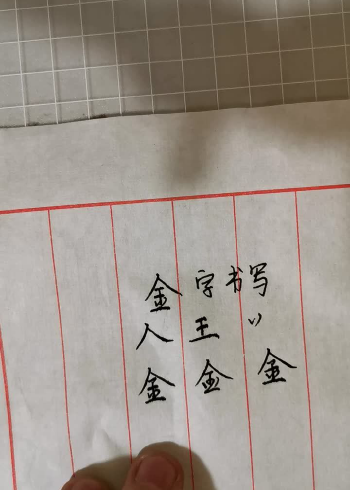 金字书写
人王丷
金金金